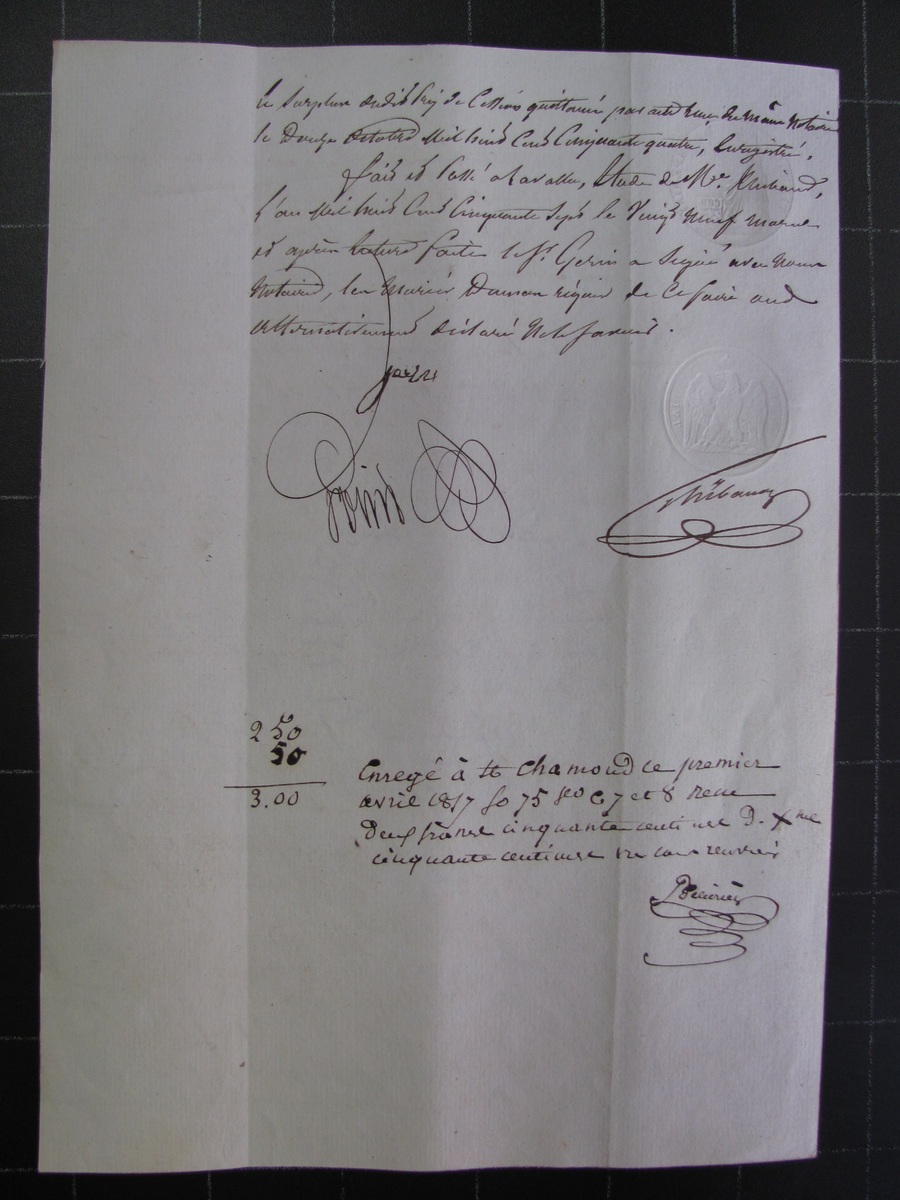 le surplus dudit prix de cession quittancé par acte reçu du même Notaire
le Douze Octobre Mil huit Cent Cinquante quatre, Enregistré.
fait et Passé à Lavalla, Etude de Me. Thibaud,
L'an Mil huit Cent Cinquante Sept le Vingt Neuf mars
et après lecture faite le Sr. Gerin a Signé avec Nous
Notaire, les Mariés requis de Ce faire ont
déclaré Ne le Savoir.
Gerin
Thibaud
2 50
50
3.00
Enregé à St Chamond le premier
avril 1857 fo 75 Vo C 7 et 8 reçu
Deux francs cinquante centimes D. Xme
cinquante centimes